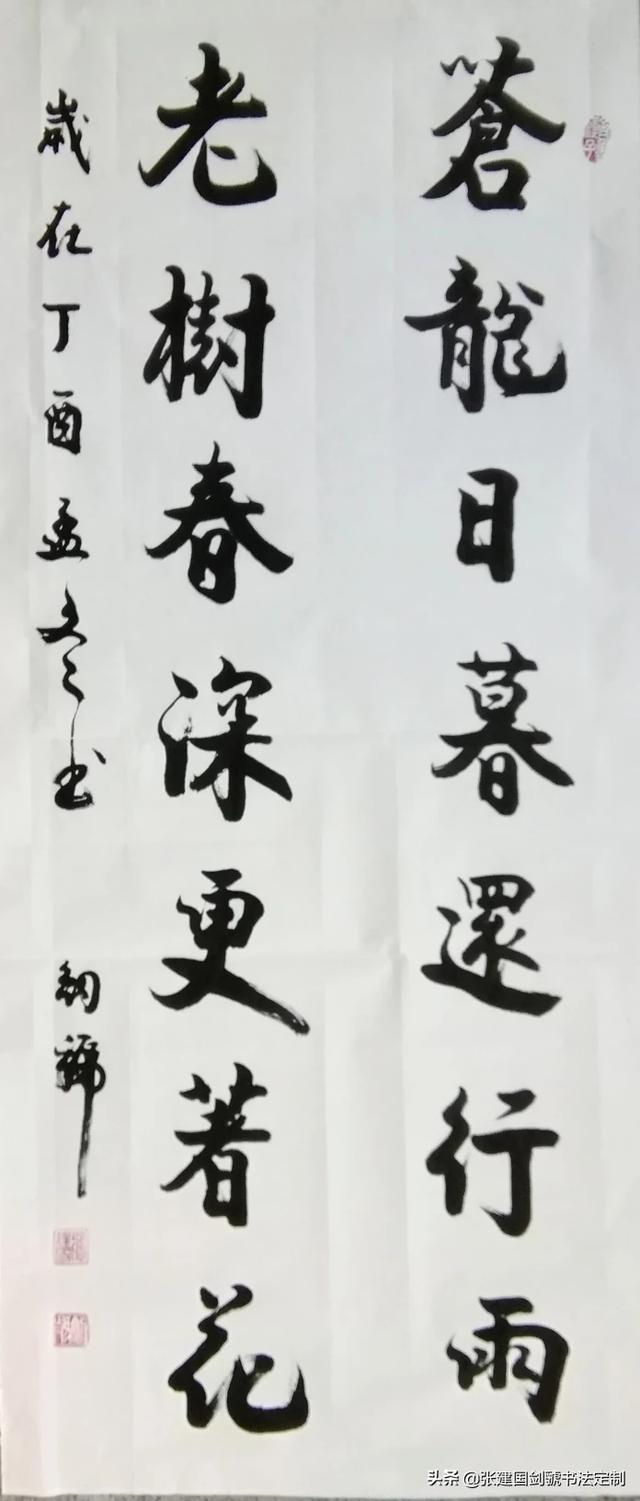 蒼龍日暮還行雨
老樹春深更著花
歲在丁酉孟冬之书 劍號
头条 @张建国剑虢书法定制